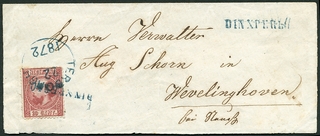 Herrn Verwalter
DINXPERLO
Aug Schorn in
Wevelinghoven
bei Neuss
1872
10 CENT